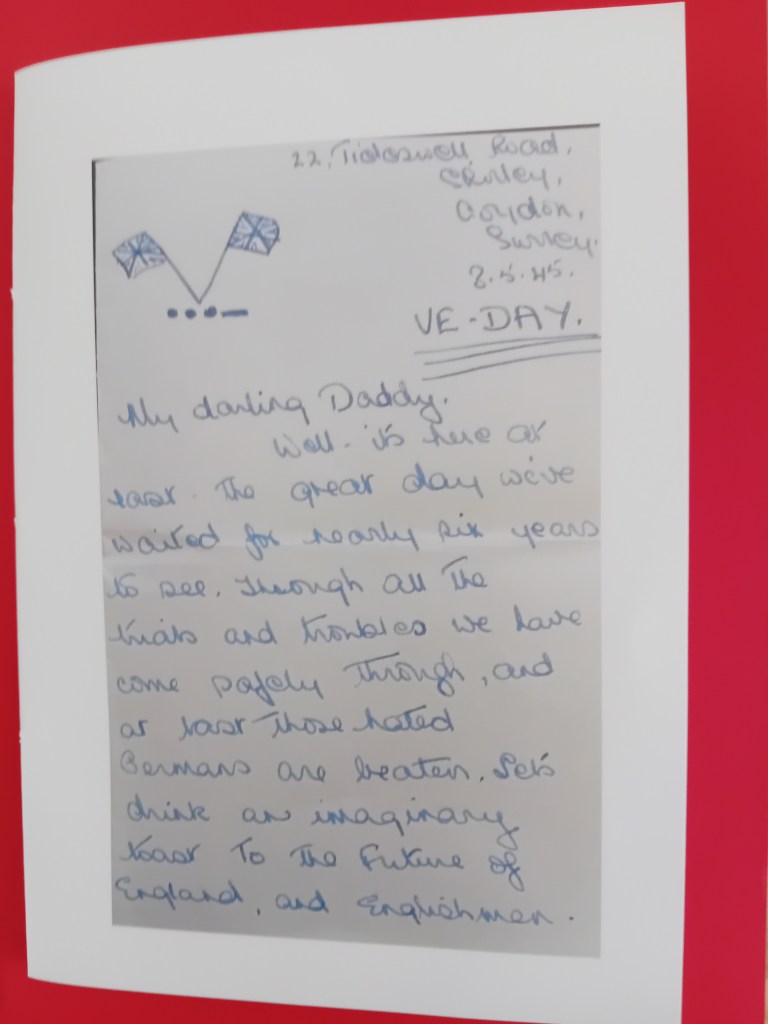 22, Tideswell Road,
Shirley,
Croydon,
Surrey.
8.5.45.
VE-DAY.
My darling Daddy.
Well. it's here at
last. The great day we've
waited for nearly six years
to see. Through all the
trials and troubles we have
come safely through, and
at last those hated
Germans are beaten. Let's
drink an imaginary
toast to the Future of
England, and Englishmen.